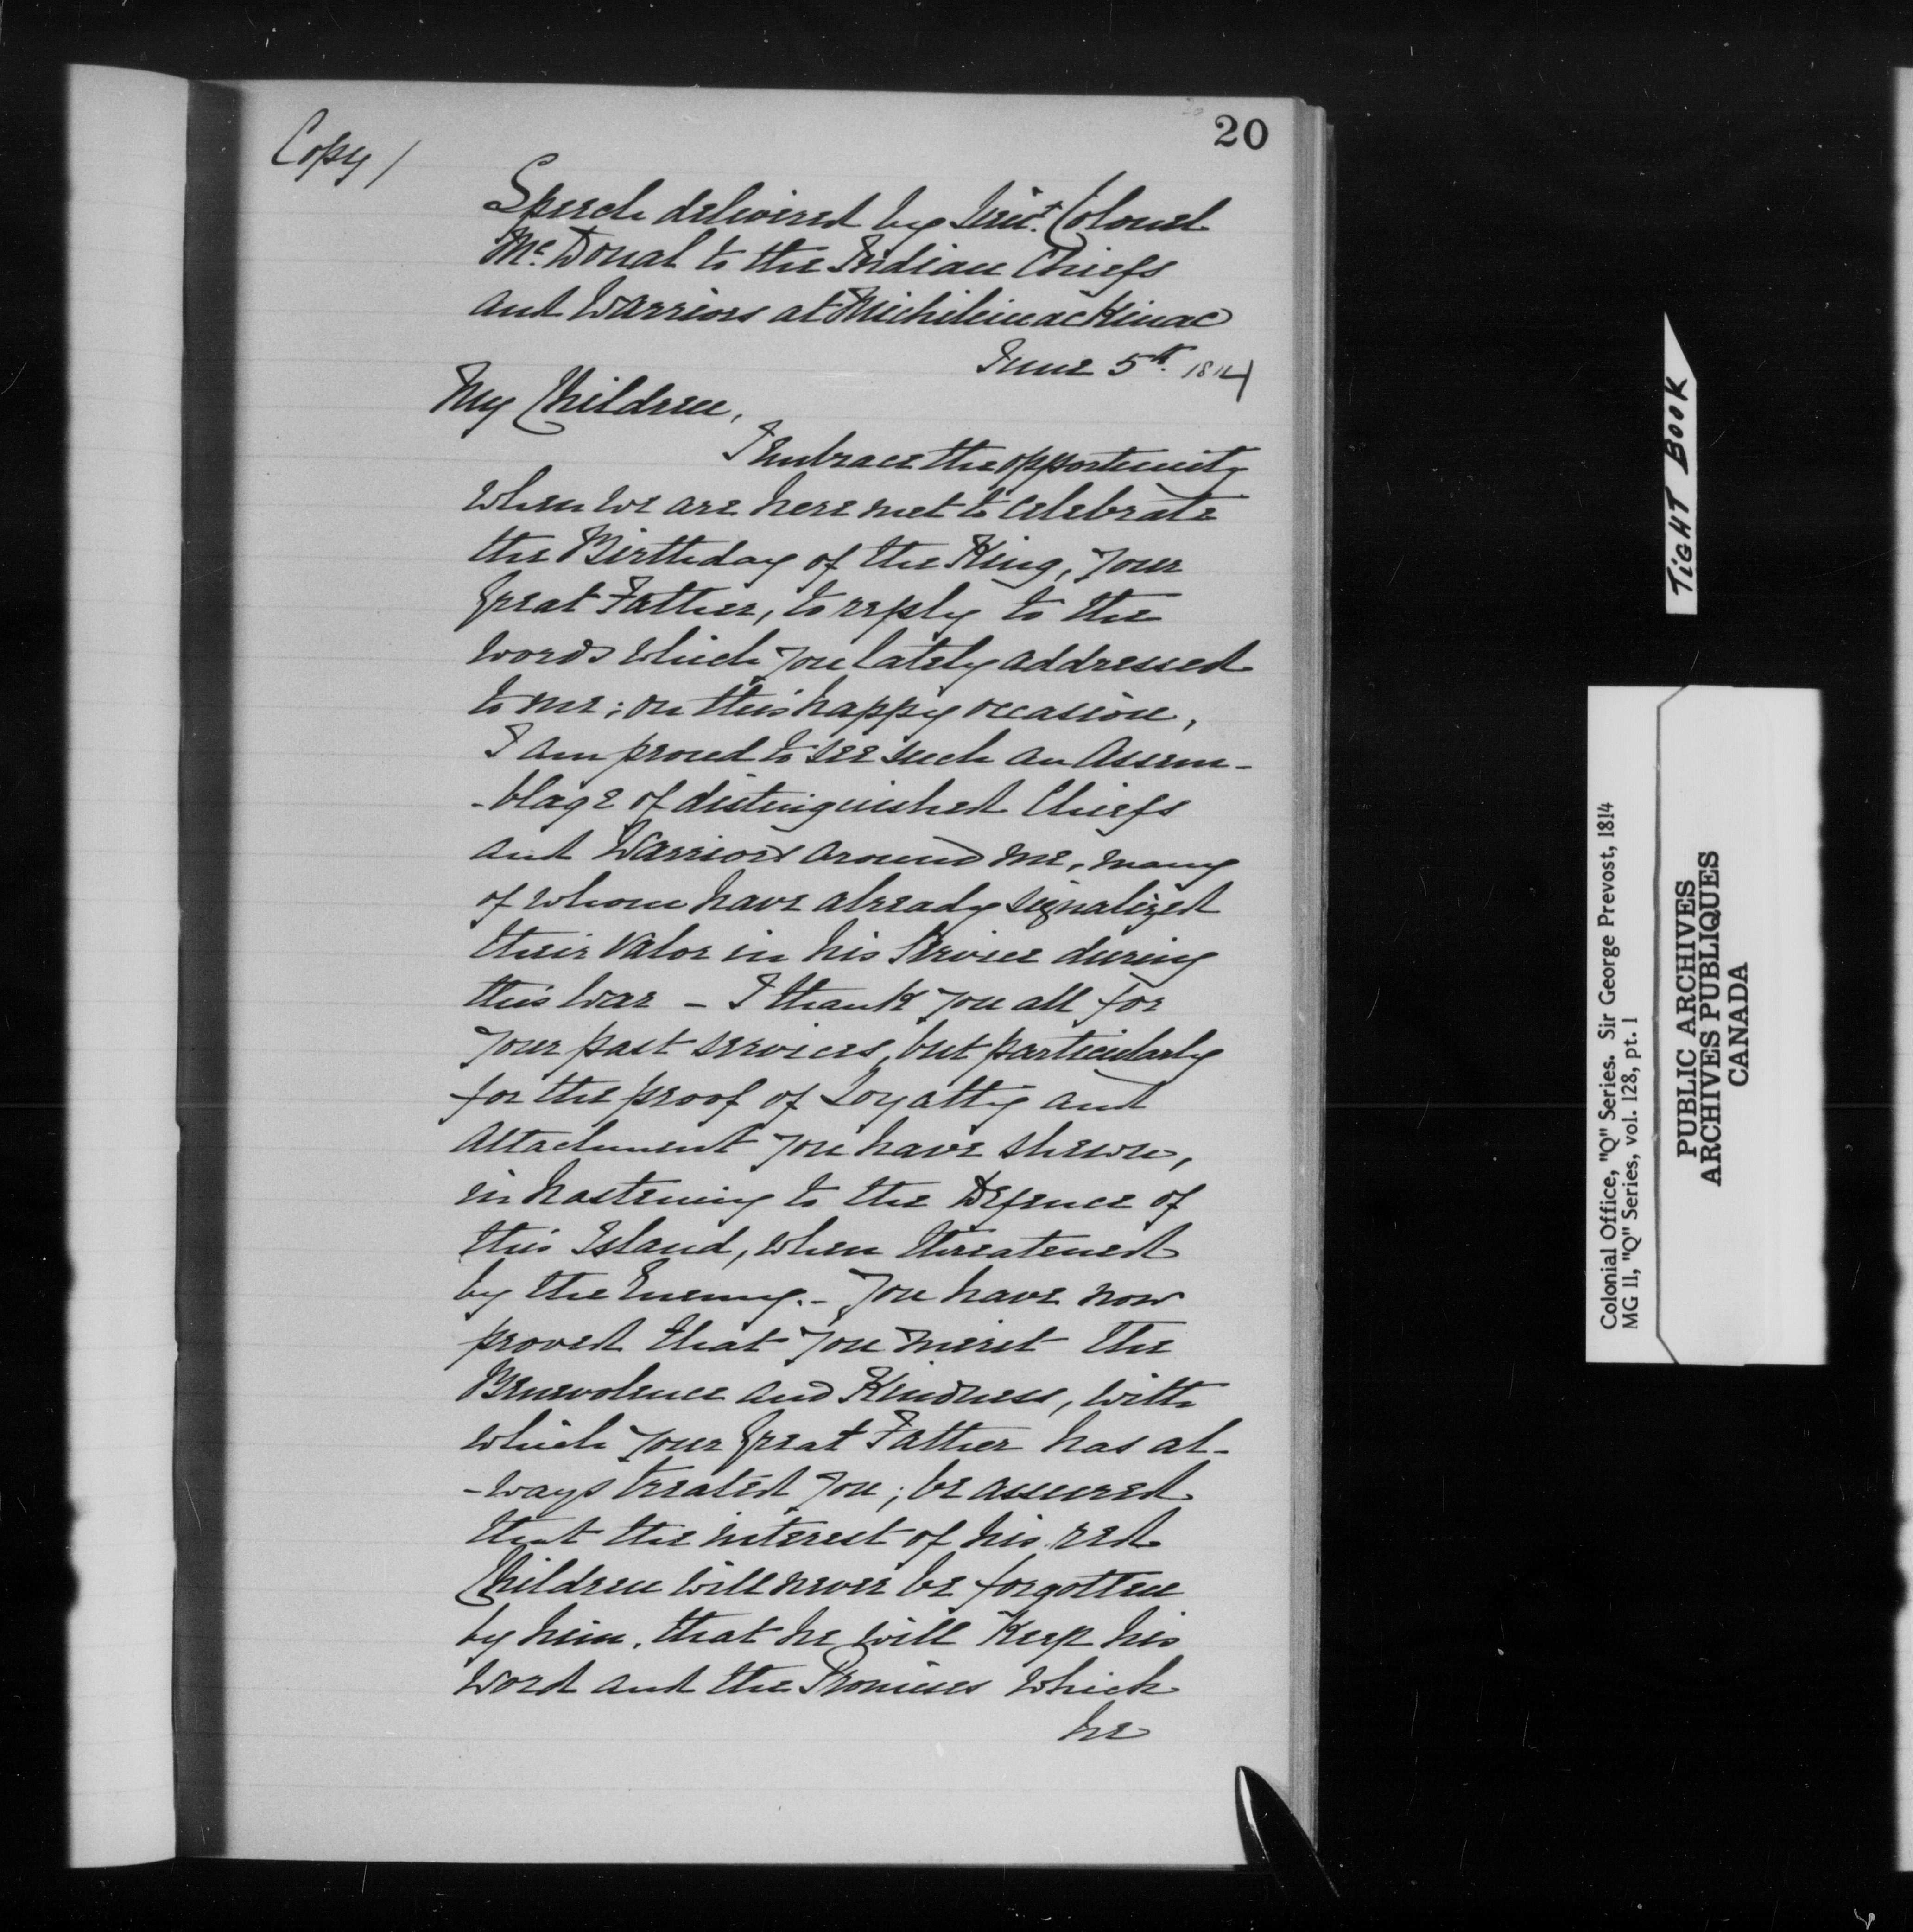 20
Copy /
Speech delivered by Lieut. Colonel
McDoual to the Indian Chiefs
and Warriors at Michilimackinac
June 5th 1814
My Children,
I embrace the opportunity
when we are here met to celebrate
the Birthday of the King, your
Great Father, to reply to the
words which you lately addressed
to me; on this happy occasion,
I am proud to see such an Assem-
-blage of distinguished Chiefs
and Warriors around me, many
of whom have already signalized
their valor in his Service during
this War - I thank you all for
your past services, but particularly
for the proof of Loyalty and
Attachment you have shewn,
in hastening to the Defence of
this Island, when threatened
by the Enemy. - You have now
proved that you merit the
Benevolence and Kindness, with
which your Great Father has al-
-ways treated you; be assured
that the interest of his red
Children will never be forgotten
by him, that he will keep his
word and the Promises which
he
TIGHT BOOK
Colonial Office, "Q" Series. Sir George Prevost, 1814
MG 11, "Q" Series, vol. 128, pt. 1
PUBLIC ARCHIVES
ARCHIVES PUBLIQUES
CANADA